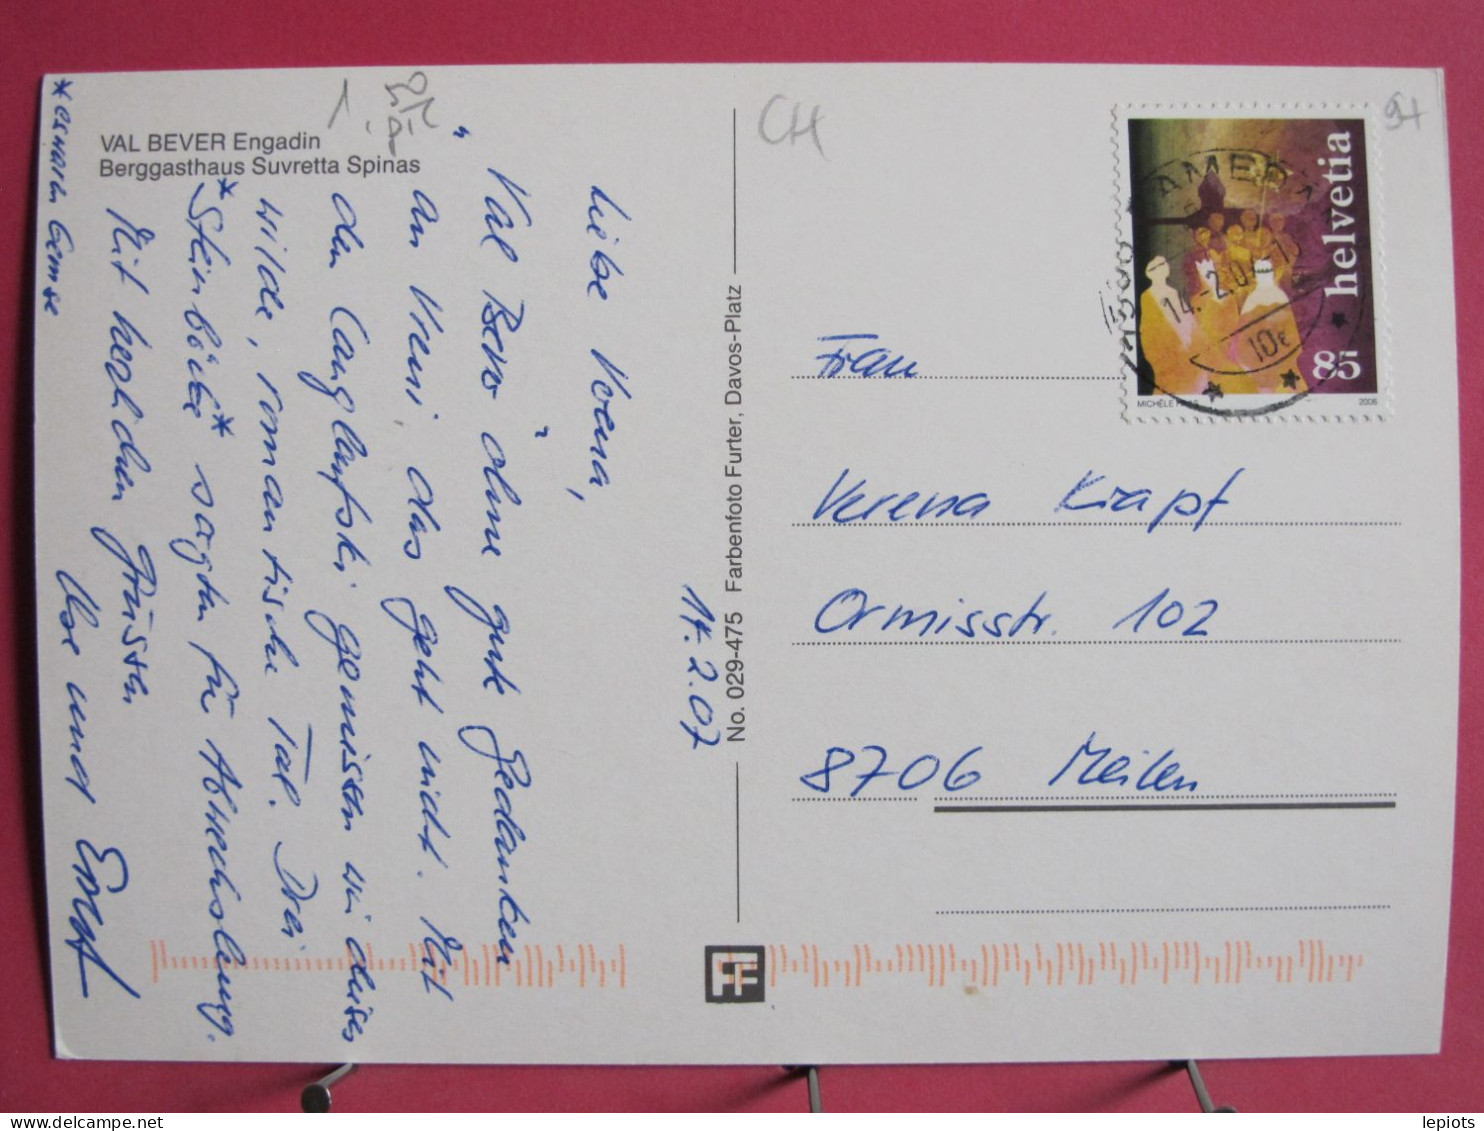 VAL BEVER Engadin
Berggasthaus Suvretta Spinas
14.2.07
Liebe Vrena,
"Val Bever" ohne gute Gedanken
an Vreni, das geht nicht. Mit
den Langlaufski geniessen wir dieses
wilde, romantische Tal. Drei
*Steinböcke* sorgten für Abwechslung.
Mit herzlichen Grüssen
und Ernst
*es waren Gemse
No. 029-475 Farbenfoto Furter, Davos-Platz
FF
CH
94
helvetia
85
MICHÈLE
2006
14.-2.07
Frau
Verena Krapf
Ormisstr. 102
8706 Meilen
lepiots